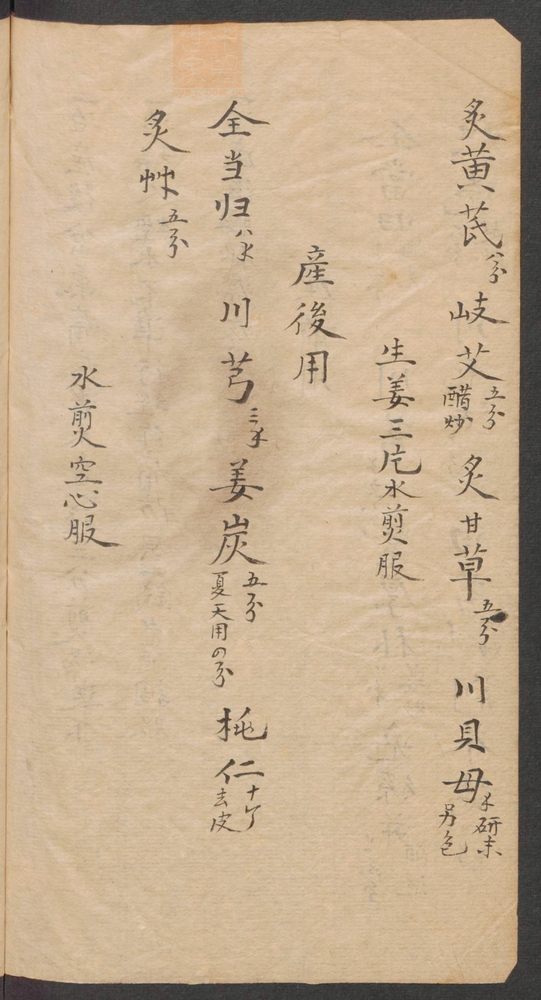 炙黄芪八分 岐艾五分醋炒 炙甘草五分 川貝母研末另包
生姜三片水煎服
産後用
全当归八 川芎三 姜炭五分夏天用四分 桃仁十丁去皮
炙艸五分
水煎空心服